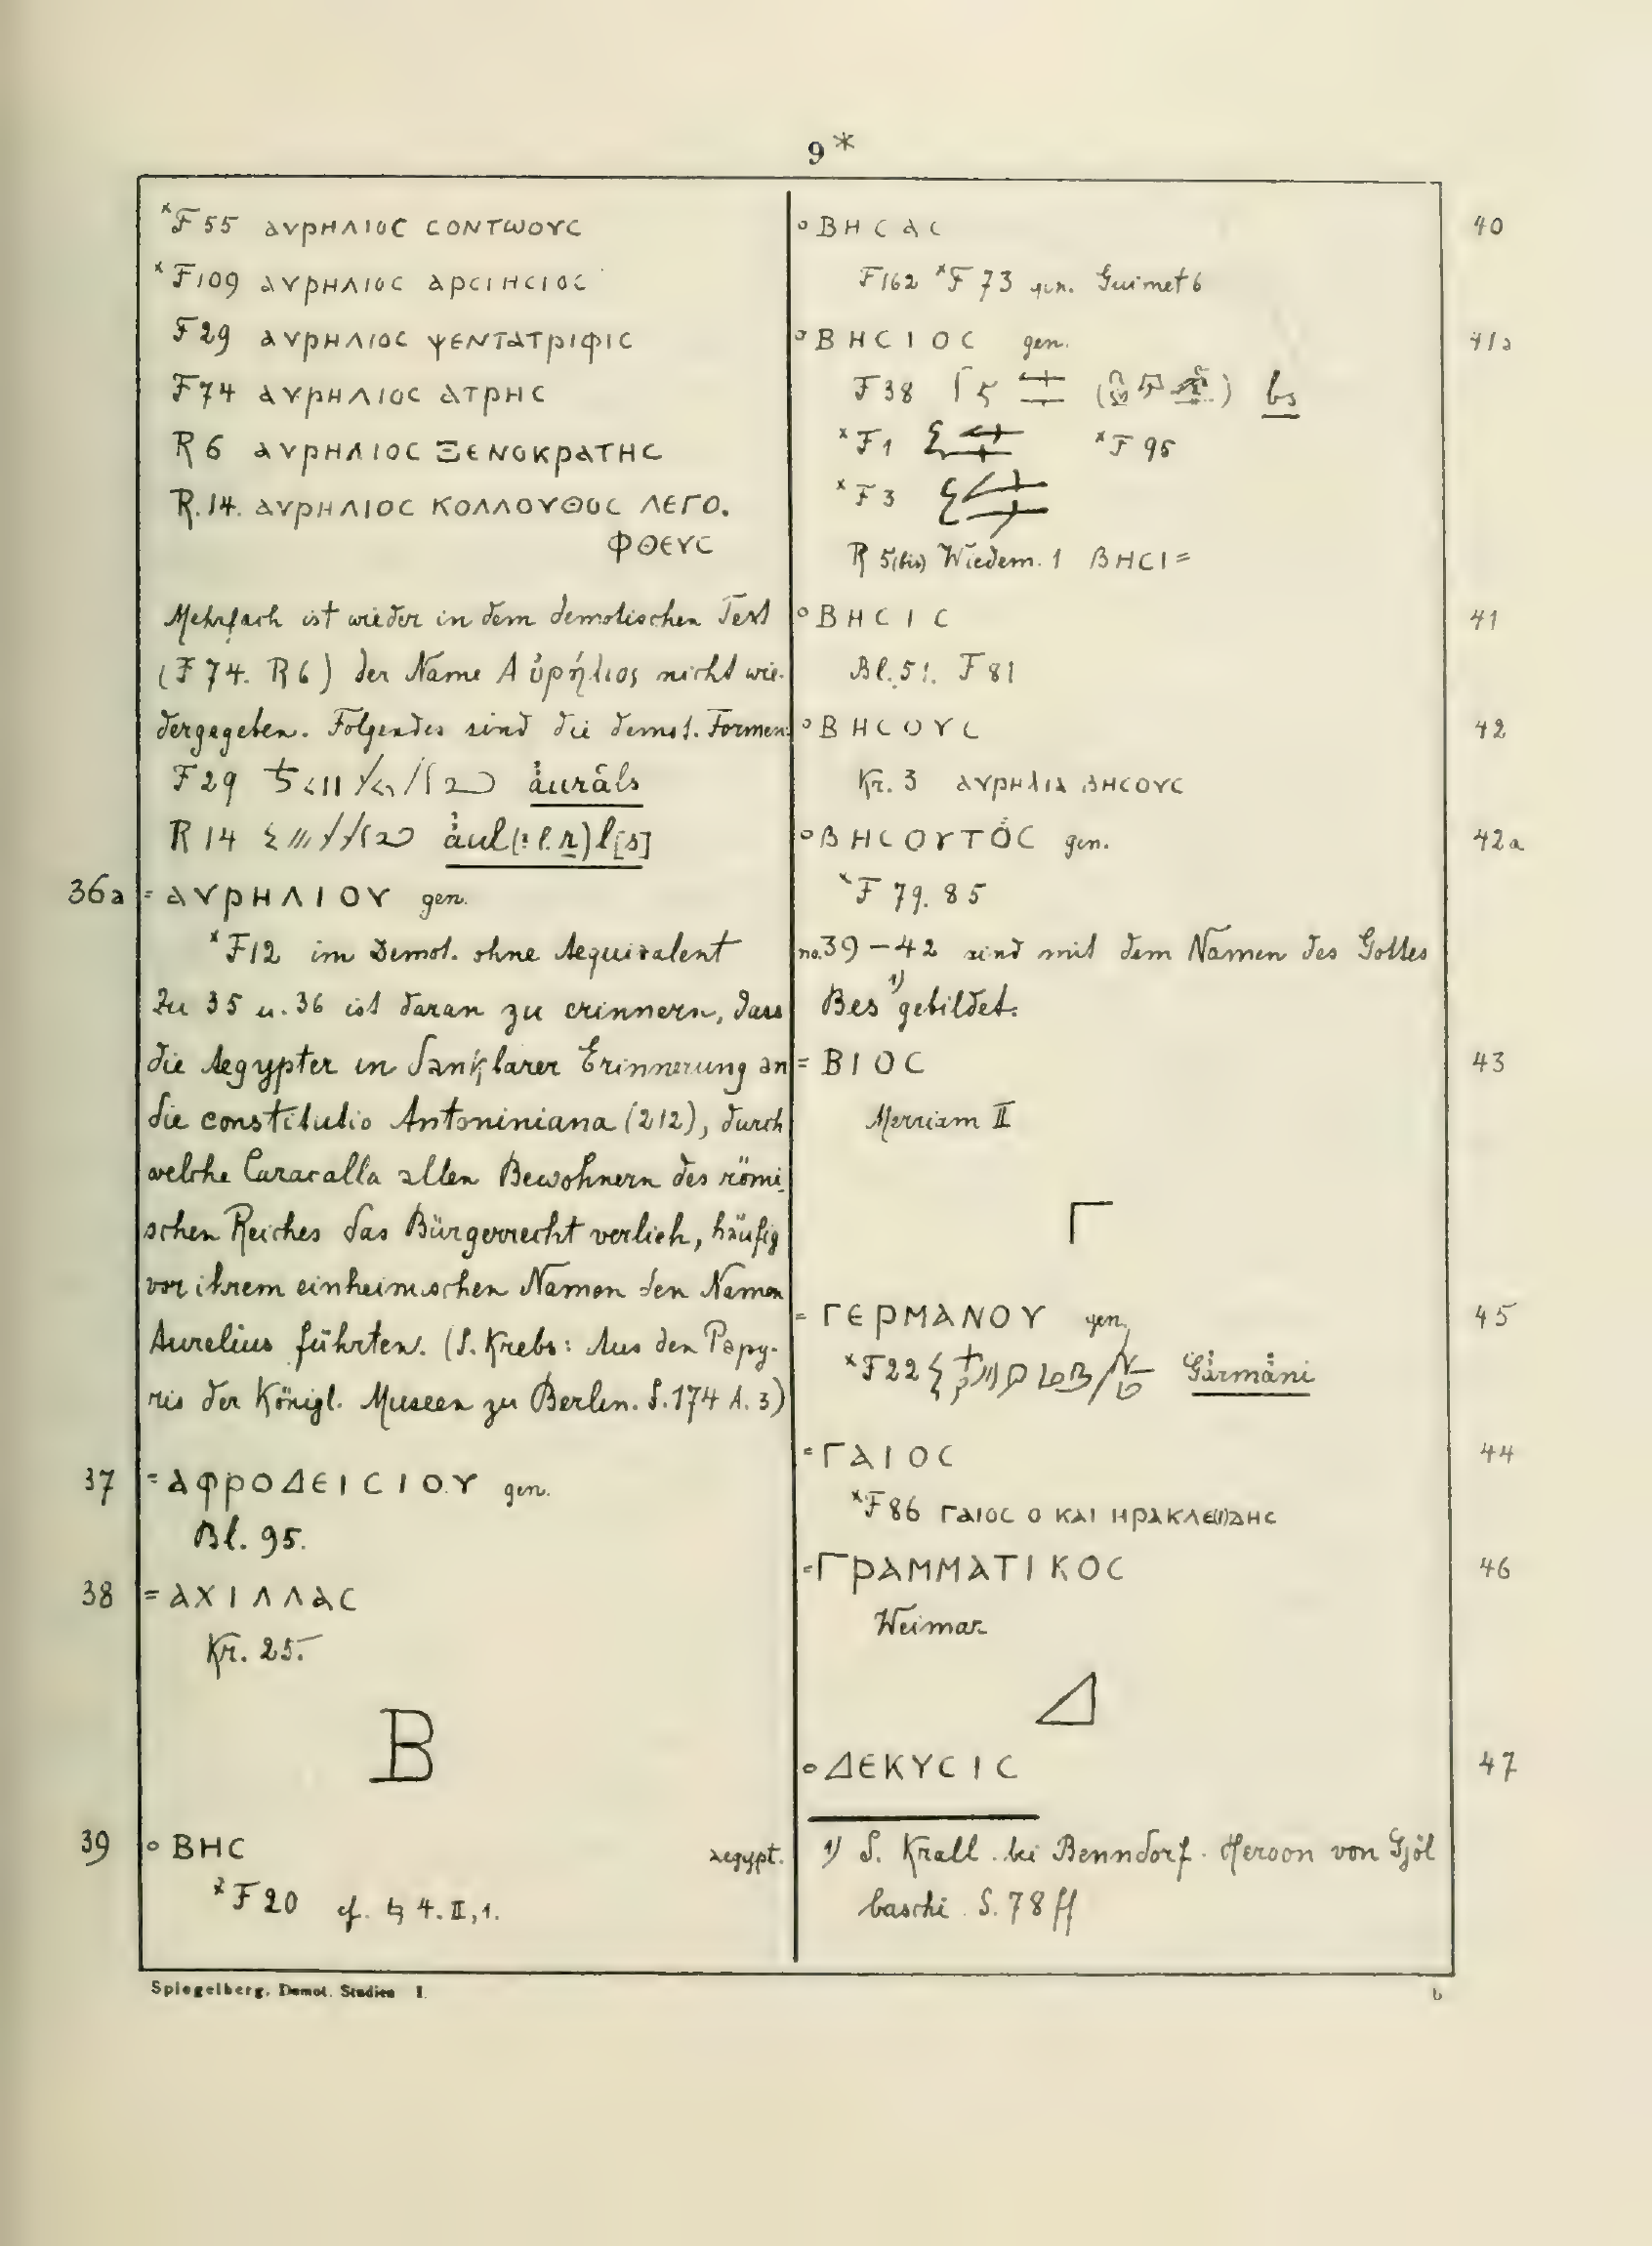 9*
*F 55 ΑΥΡΗΛΙΟC CΟΝΤΩΟΥC
*F109 ΑΥΡΗΛΙΟC ΑΡCΙΗCΙΟC
F 29 ΑΥΡΗΛΙΟC ΨΕΝΤΑΤΡΙΦΙC
F 74 ΑΥΡΗΛΙΟC ΑΤΡΗC
R 6 ΑΥΡΗΛΙΟC ΞΕΝΟΚΡΑΤΗC
R. 14. ΑΥΡΗΛΙΟC ΚΟΛΛΟΥΘΟC ΛΕΓΟ.
ΦΘΕΥC
Mehrfach ist wieder in dem demotischen Text
(F 74. R 6) der Name Αὐρήλιος nicht wie-
dergegeben. Folgendes sind die demot. Formen:
F 29 åuråls
R 14 åul(: l. r)l[s]
36a = ΑΥΡΗΛΙΟΥ gen.
*F12 im Demot. ohne Aequivalent
Zu 35 u. 36 ist daran zu erinnern, dass
die Aegypter in dankbarer Erinnerung an
die constitutio Antoniniana (212), durch
welche Caracalla allen Bewohnern des römi-
schen Reiches das Bürgerrecht verlieh, häufig
vor ihrem einheimischen Namen den Namen
Aurelius führten. (S. Krebs: Aus den Papy-
ris der Königl. Museen zu Berlin. S. 174 A. 3)
37 = ΑΦΡΟΔΕΙCΙΟΥ gen.
Bl. 95.
38 = ΑΧΙΛΛΑC
Kr. 25.
B
39 ° ΒΗC aegypt.
*F 20 cf. 4. II, 1.
° ΒΗCΑC 40
F162 *F 73 gen. Guimet 6
° ΒΗCΙΟC gen. 41a
F 38 bs
*F 1 *F 95
*F 3
R 5(bis) Wiedem. 1 ΒΗCΙ=
° ΒΗCΙC 41
Bl. 51. F 81
° ΒΗCΟΥC 42
Kr. 3 ΑΥΡΗΛΙΑ ΒΗCΟΥC
° ΒΗCΟΥΤΟC gen. 42a
*F 79. 85
no. 39 – 42 sind mit dem Namen des Gottes
Bes 1) gebildet.
= ΒΙΟC 43
Merriam II
Γ
= ΓΕΡΜΑΝΟΥ gen. 45
*F22 Gårmåni
= ΓΑΙΟC 44
*F 86 ΓΑΙΟC Ο ΚΑΙ ΗΡΑΚΛΕ(Ι)ΔΗC
= ΓΡΑΜΜΑΤΙΚΟC 46
Weimar
Δ
° ΔΕΚΥCΙC 47
1) S. Krall bei Benndorf. Heroon von Gjöl
baschi S. 78 ff
Spiegelberg, Demot. Studien I. b